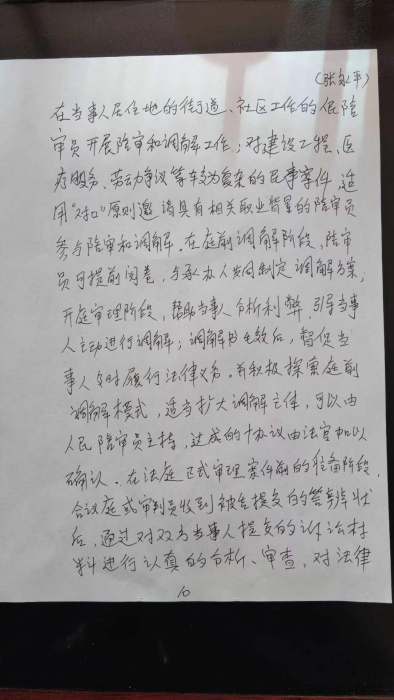 (张永平)
在当事人居住地的街道、社区工作的人民陪
审员开展陪审和调解工作；对建设工程、医
疗服务、劳动争议等较为复杂的民事案件，适
用“对口”原则邀请具有相关职业背景的陪审员
参与陪审和调解。在庭前调解阶段，陪审
员可提前阅卷，与承办人共同制定调解方案；
开庭审理阶段，帮助当事人分析利弊，引导当事
人主动进行调解；调解书生效后，督促当
事人及时履行法律义务。并积极探索庭前
调解模式，适当扩大调解主体，可以由
人民陪审员主持，达成的协议由法官加以
确认。在法庭正式审理案件前的准备阶段，
合议庭或审判员收到被告提交的答辩状
后，通过对双方当事人提交的诉讼材
料进行认真的分析、审查，对法律
10